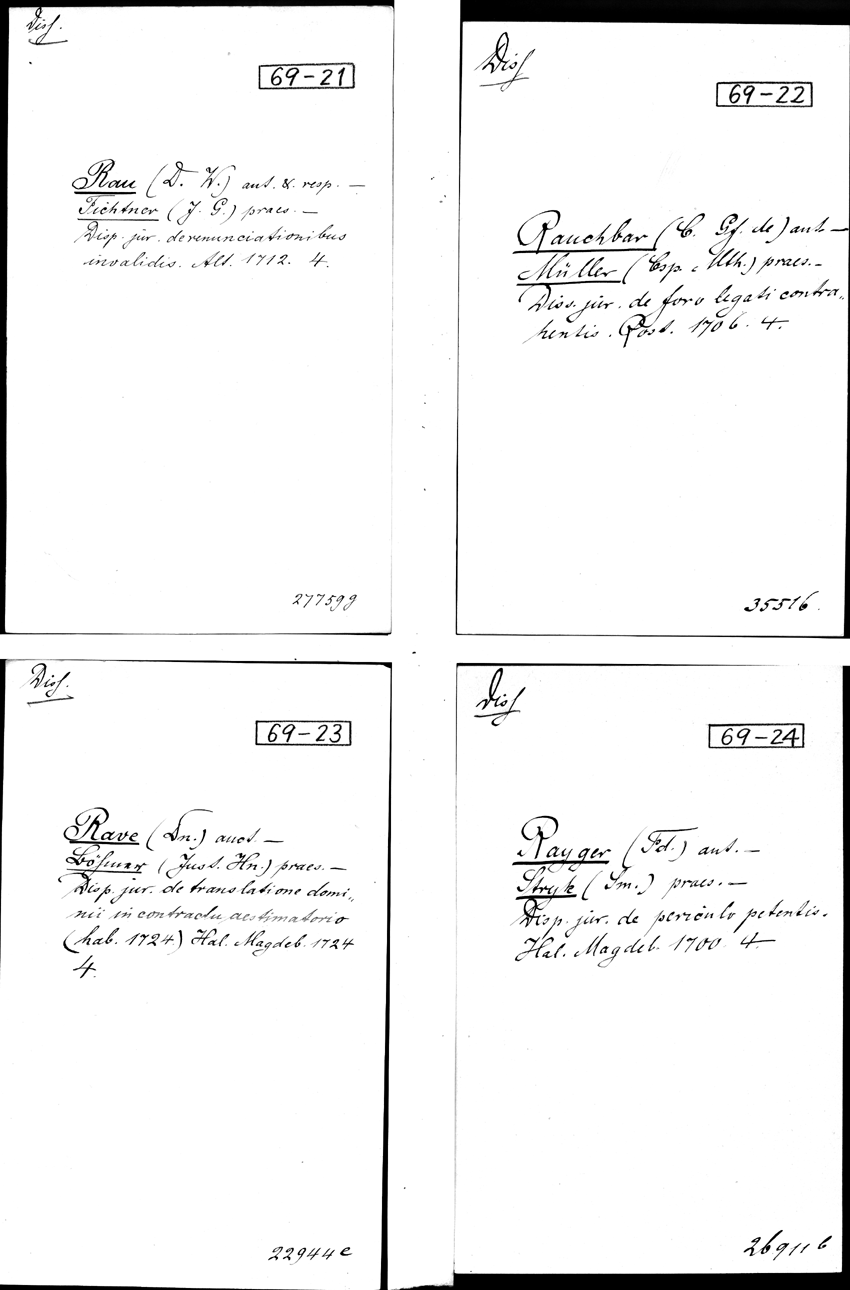 Diss.
69-21
Rau (D. W.) aut. & resp. —
Fichtner (J. G.) praes. —
Disp. jur. de renunciationibus
invalidis. Alt. 1712. 4.
277599
Diss
69-22
Rauchbar (C. Gf. de) aut. —
Müller (Csp. Mth.) praes. —
Diss. jur. de foro legati contra„
hentis. Rost. 1706. 4.
35516.
Diss.
69-23
Rave (Dn.) auct. —
Böhmer (Just. Hn.) praes. —
Disp. jur. de translatione domi„
nii in contractu aestimatorio
(hab. 1724) Hal. Magdeb. 1724
4.
22944e
Diss
69-24
Rayger (Fd.) aut. —
Stryk (Sm.) praes. —
Disp. jur. de periculo petentis.
Hal. Magdeb. 1700. 4.
26911b